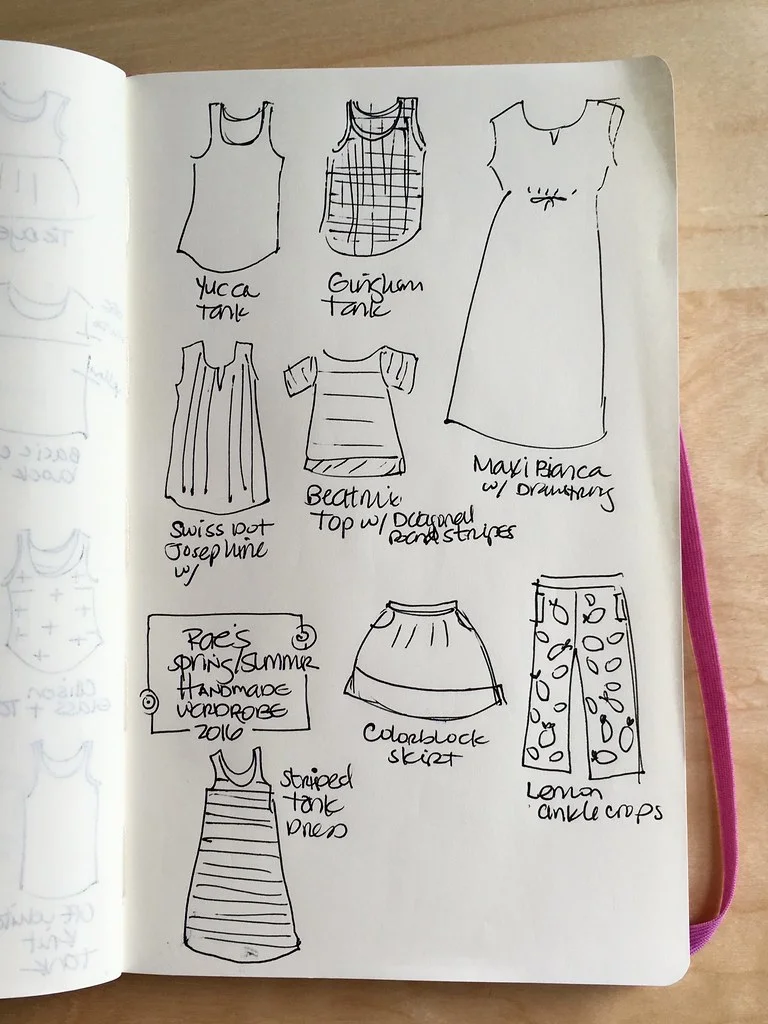 Yucca
Tank
Gingham
Tank
Maxi Bianca
w/ Drawstring
Swiss Dot
Josephine
w/
Beatrix
Top w/ Diagonal
Band stripes
Rae's
Spring/Summer
Handmade
Wardrobe
2016
Colorblock
skirt
Lemon
ankle crops
Striped
Tank
Dress